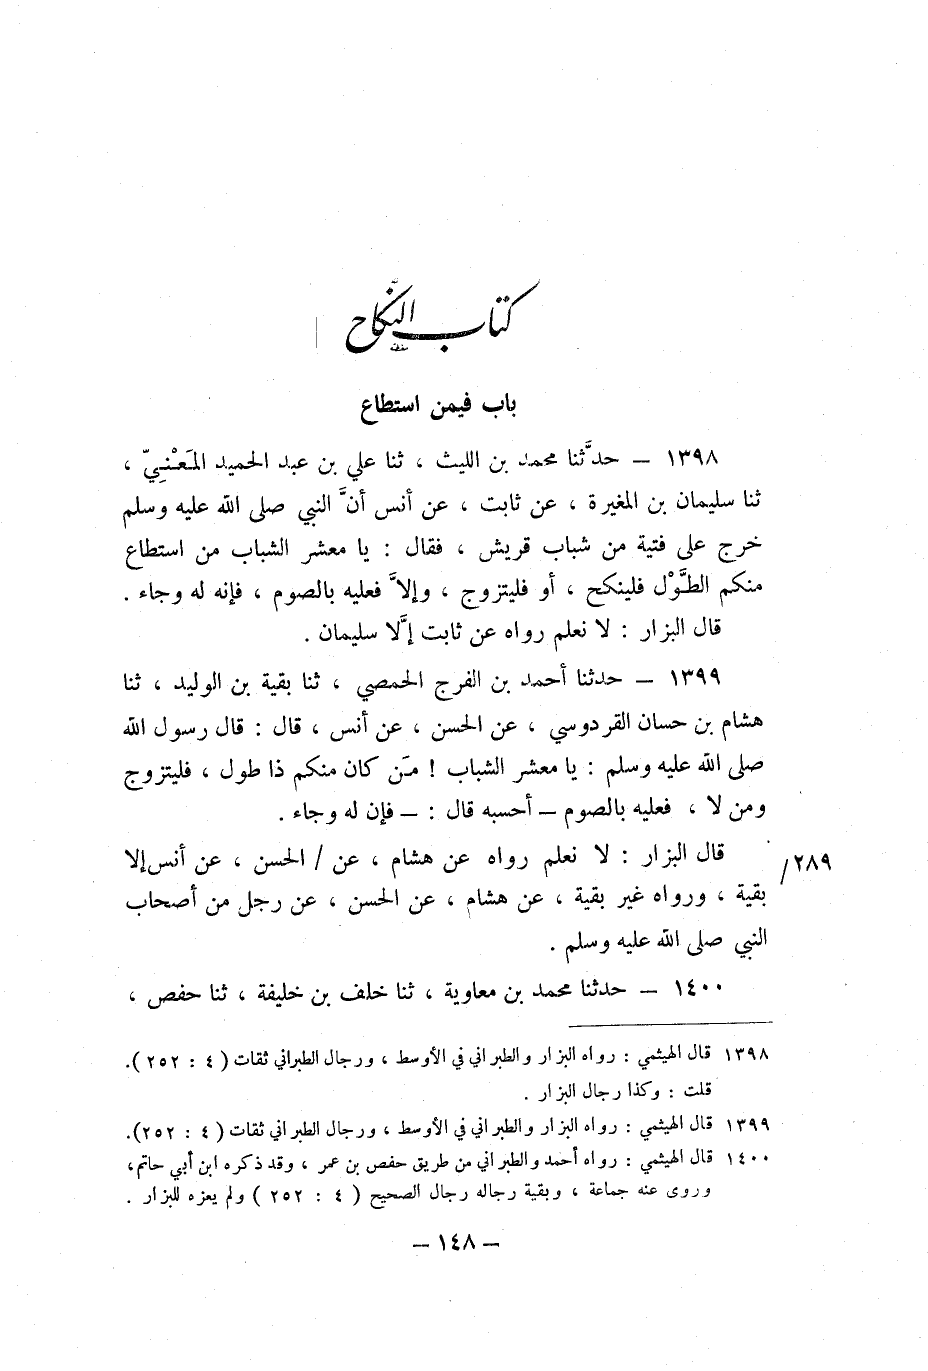 كتاب النكاح
باب فيمن استطاع
١٣٩٨ – حدَّثنا محمد بن الليث ، ثنا علي بن عبد الحميد المَعْنِيّ ،
ثنا سليمان بن المغيرة ، عن ثابت ، عن أنس أنَّ النبي صلى الله عليه وسلم
خرج على فتية من شباب قريش ، فقال : يا معشر الشباب من استطاع
منكم الطَّوْل فلينكح ، أو فليتزوج ، وإلاَّ فعليه بالصوم ، فإنه له وجاء .
قال البزار : لا نعلم رواه عن ثابت إلَّا سليمان .
١٣٩٩ – حدثنا أحمد بن الفرج الحمصي ، ثنا بقية بن الوليد ، ثنا
هشام بن حسان القردوسي ، عن الحسن ، عن أنس ، قال : قال رسول الله
صلى الله عليه وسلم : يا معشر الشباب ! مَن كان منكم ذا طول ، فليتزوج
ومن لا ، فعليه بالصوم – أحسبه قال : – فإن له وجاء .
قال البزار : لا نعلم رواه عن هشام ، عن / الحسن ، عن أنس إلا
/٢٨٩
بقية ، ورواه غير بقية ، عن هشام ، عن الحسن ، عن رجل من أصحاب
النبي صلى الله عليه وسلم .
١٤٠٠ – حدثنا محمد بن معاوية ، ثنا خلف بن خليفة ، ثنا حفص ،
١٣٩٨ قال الهيثمي : رواه البزار والطبراني في الأوسط ، ورجال الطبراني ثقات ( ٤ : ٢٥٢ ).
قلت : وكذا رجال البزار .
١٣٩٩ قال الهيثمي : رواه البزار والطبراني في الأوسط ، ورجال الطبراني ثقات ( ٤ : ٢٥٢).
١٤٠٠ قال الهيثمي : رواه أحمد والطبراني من طريق حفص بن عمر ، وقد ذكره ابن أبي حاتم ،
وروى عنه جماعة ، وبقية رجاله رجال الصحيح ( ٤ : ٢٥٢ ) ولم يعزه للبزار .
– ١٤٨ –